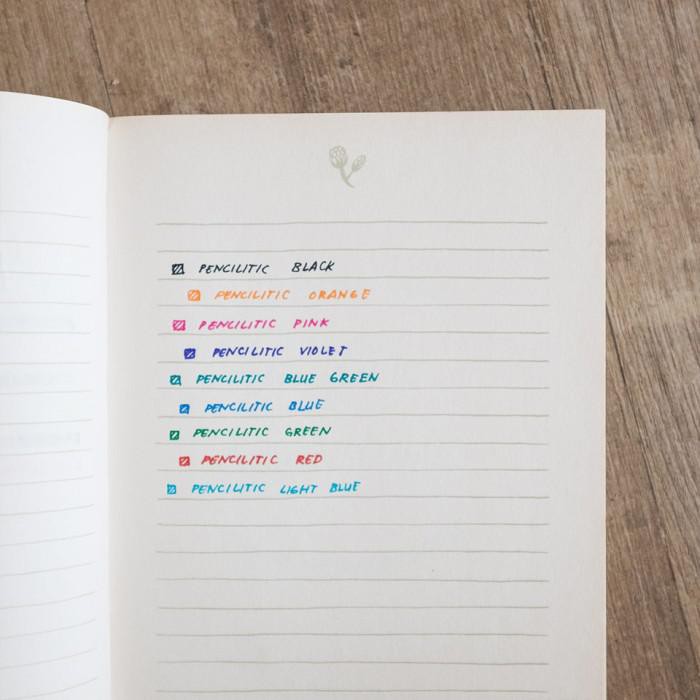 PENCILITIC BLACK
PENCILITIC ORANGE
PENCILITIC PINK
PENCILITIC VIOLET
PENCILITIC BLUE GREEN
PENCILITIC BLUE
PENCILITIC GREEN
PENCILITIC RED
PENCILITIC LIGHT BLUE